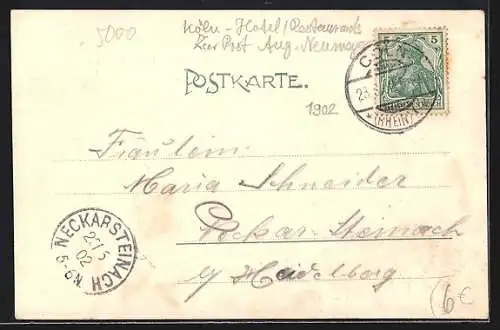 5000
Köln - Hotel / Restaurants
Zur Post Aug. Neumeyer
5 5
CÖLN
POSTKARTE.
23.
*(RHEIN)
1902
Fräulein
Maria Schneider
Neckar-Steinach
b/ Heidelberg
NECKARSTEINACH
5-6N.
02
6€